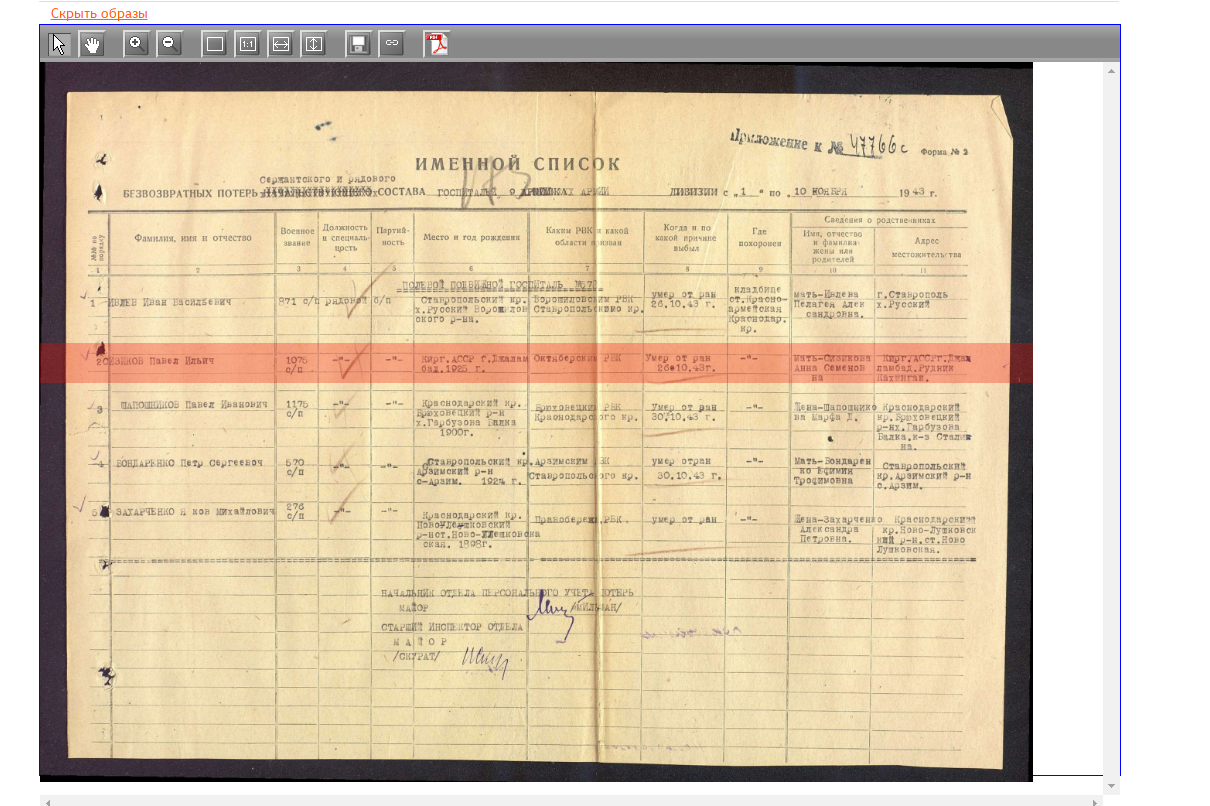 Скрыть образы
1:1
PDF
Приложение к № 47766с
Форма № 2
ИМЕННОЙ СПИСОК
Сержантского и рядового
БЕЗВОЗВРАТНЫХ ПОТЕРЬ СОСТАВА ГОСПИТАЛЕЙ 9 АРМИИ ДИВИЗИИ с „1 “ по 10 НОЯБРЯ 1943 г.
№№ по порядку
Фамилия, имя и отчество
Военное звание
Должность и специальность
Партийность
Место и год рождения
Каким РВК и какой области призван
Когда и по какой причине выбыл
Где похоронен
Сведения о родственниках
Имя, отчество и фамилия жены или родителей
Адрес местожительства
1 2 3 4 5 6 7 8 9 10 11
ПОЛЕВОЙ ПОДВИЖНОЙ ГОСПИТАЛЬ
1 ИВЛЕВ Иван Васильевич
871 с/п рядовой б/п
Ставропольский кр.
х.Русский Ворошилов
ского р-на.
Ворошиловским РВК
Ставропольского кр.
умер от ран
26.10.43 г.
кладбище
ст.Красно-
армейская
Краснодар.
кр.
мать-Ивлева
Пелагея Алек
сандровна.
г.Ставрополь
х.Русский
2 СИЗИКОВ Павел Ильич
1075
с/п
-"-
-"-
Кирг.АССР г.Джалал
бад.1925 г.
Октяберским РВК
Умер от ран
26.10.43г.
-"-
мать-Сизикова
Анна Семенов
на
Кирг.АССРг.Джа
ламбад.Рудник
3 ШАПОШНИКОВ Павел Иванович
1175
с/п
-"-
-"-
Краснодарский кр.
Брюховецкий р-н
х.Гарбузова Балка
1900г.
Брюховецким РВК
Краснодарского кр.
Умер от ран
30.10.43 г.
-"-
Жена-Шапошнико
ва Марфа Д.
Краснодарский
кр.Брюховецкий
р-нх.Гарбузова
Балка.к-з Сталин
на.
4 БОНДАРЕНКО Петр Сергеевич
570
с/п
-"-
-"-
Ставропольский кр.
Арзимский р-н
с-Арзим. 1924 г.
Арзимским РВК
Ставропольского кр.
умер отран
30.10.43 г.
-"-
Мать-Бондарен
ко Ефимия
Трофимовна
Ставропольский
кр.Арзимский р-н
с.Арзим.
5 ЗАХАРЧЕНКО Я ков Михайлович
276
с/п
-"-
-"-
Краснодарский кр.
р-нст.Ново-
ская. 1898г.
РВК.
умер от ран
-"-
Жена-Захарченко
Александра
Петровна.
Краснодарский
кр.Ново-Лушковск
ий р-н.ст.Ново
Лушковская.
НАЧАЛЬНИК ОТДЕЛА ПЕРСОНАЛЬНОГО УЧЕТА ПОТЕРЬ
МАЙОР /МИЛЬМАН/
СТАРШИЙ ИНСПЕКТОР ОТДЕЛА
М А Й О Р
/СКУРАТ/